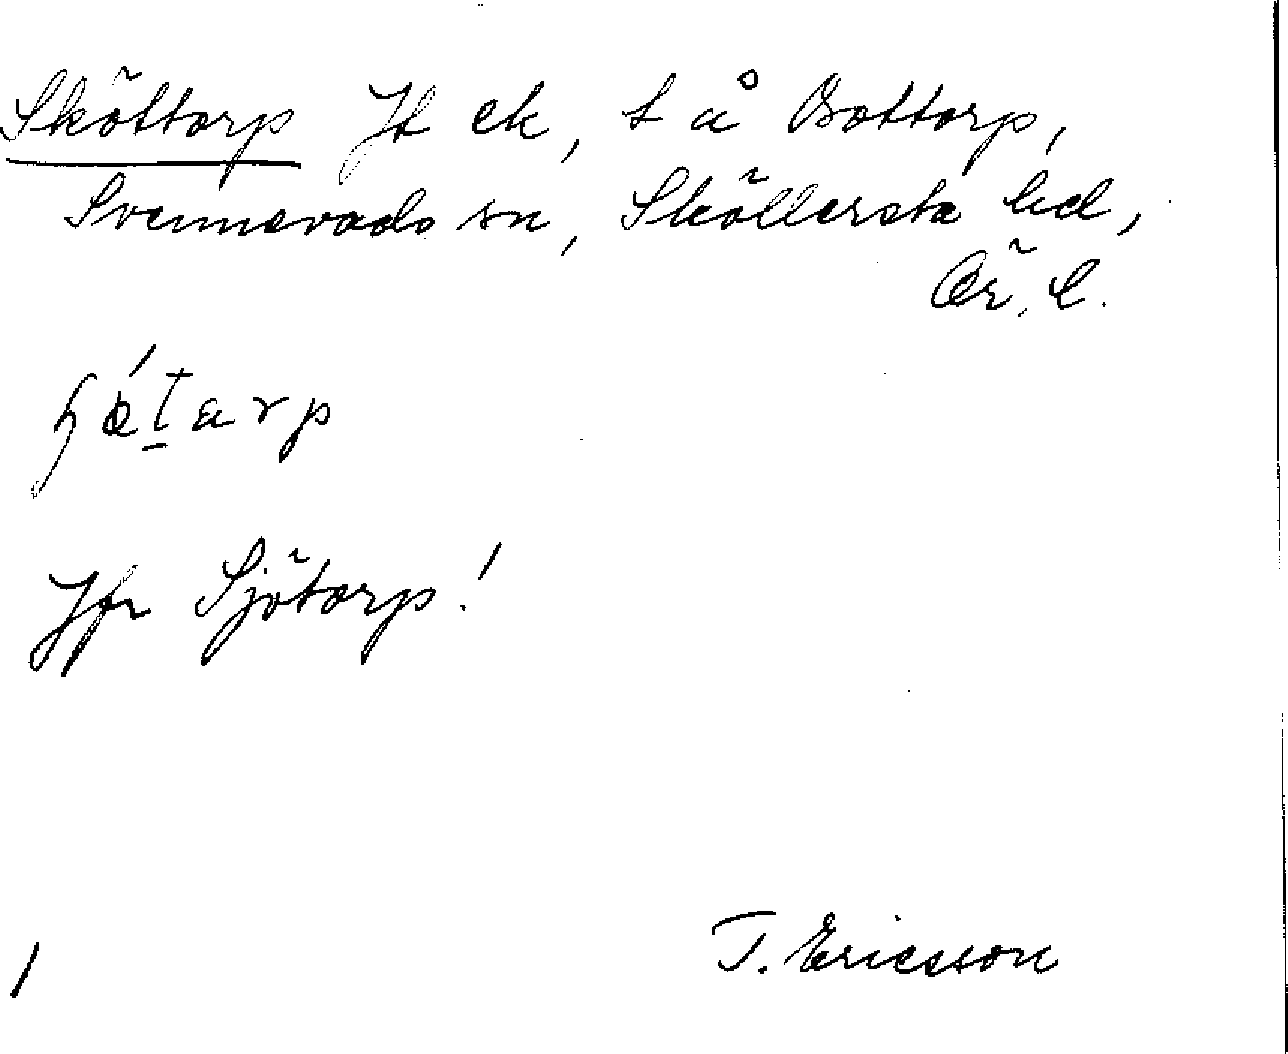 Sköttorp Jt ek, t å Bottorp,
Svennevads sn, Sköllersta hd,
Ör. l.
Jfr Sjötorp!
T. Ericsson
1